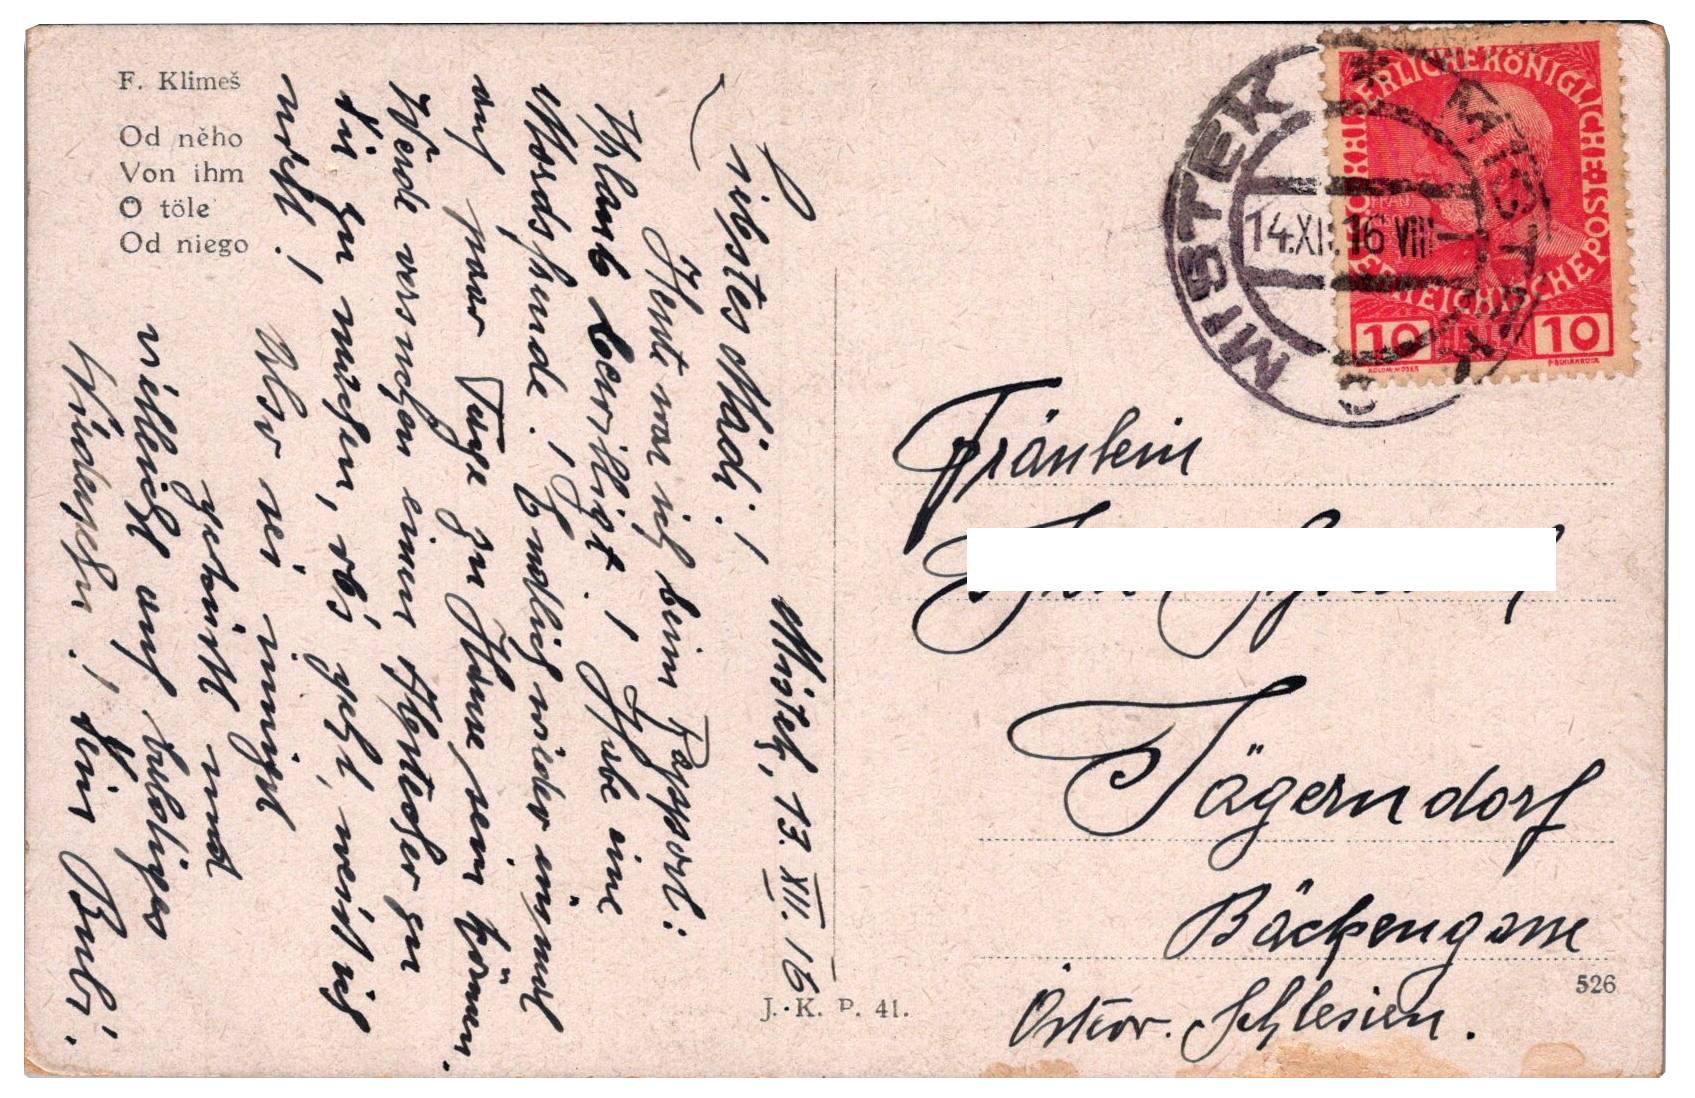 F. Klimeš
Od něho
Von ihm
Ö töle
Od niego
Mistek, 13. XII. 16
Liebstes Mädi!
Heute war ich beim Rapport:
Urlaub bewilligt! Habe eine
Mordsfreude! Endlich wieder einmal
auf paar Tage zu Hause sein können.
Werde versuchen einen Afterer zu
Dir zu, ob's geht, weiß ich
nicht!
Also sei innigst
geküßt und
vielleicht auf baldiges
Wiedersehn! Dein Bubi.
J. K. P. 41.
MISTEK
14.XII.16 VIII
KAISERLICHE KÖNIGLICHE ÖSTERREICHISCHE POST
10 HELLER 10
KOLOM. MOSER
F. SCHIRNBÖCK
Fräulein
Jägerndorf
Bäckengasse
Österr. Schlesien.
526